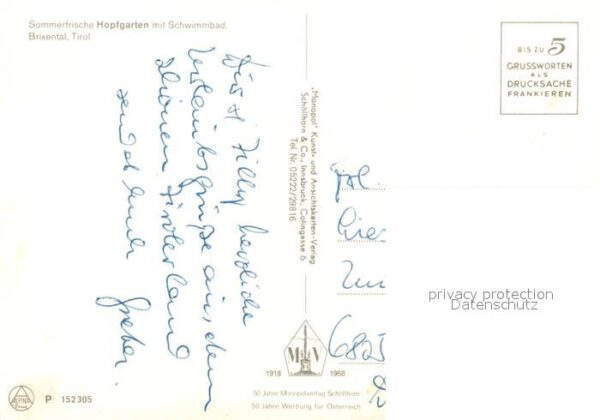 Sommerfrische Hopfgarten mit Schwimmbad.
Brixental, Tirol
BIS ZU 5
GRUSSWORTEN
ALS
DRUCKSACHE
FRANKIEREN
herzliche
Urlaubsgrüße aus dem
schönen Tirolerland
sendet Euch
„Monopol" Kunst- und Ansichtskarten-Verlag
Schöllhorn & Co., Innsbruck, Colingasse 6
Tel. Nr. 05222/29816
privacy protection
Datenschutz
MV
1918 1968
50 Jahre Monopolverlag Schöllhorn
50 Jahre Werbung für Österreich
P 152305